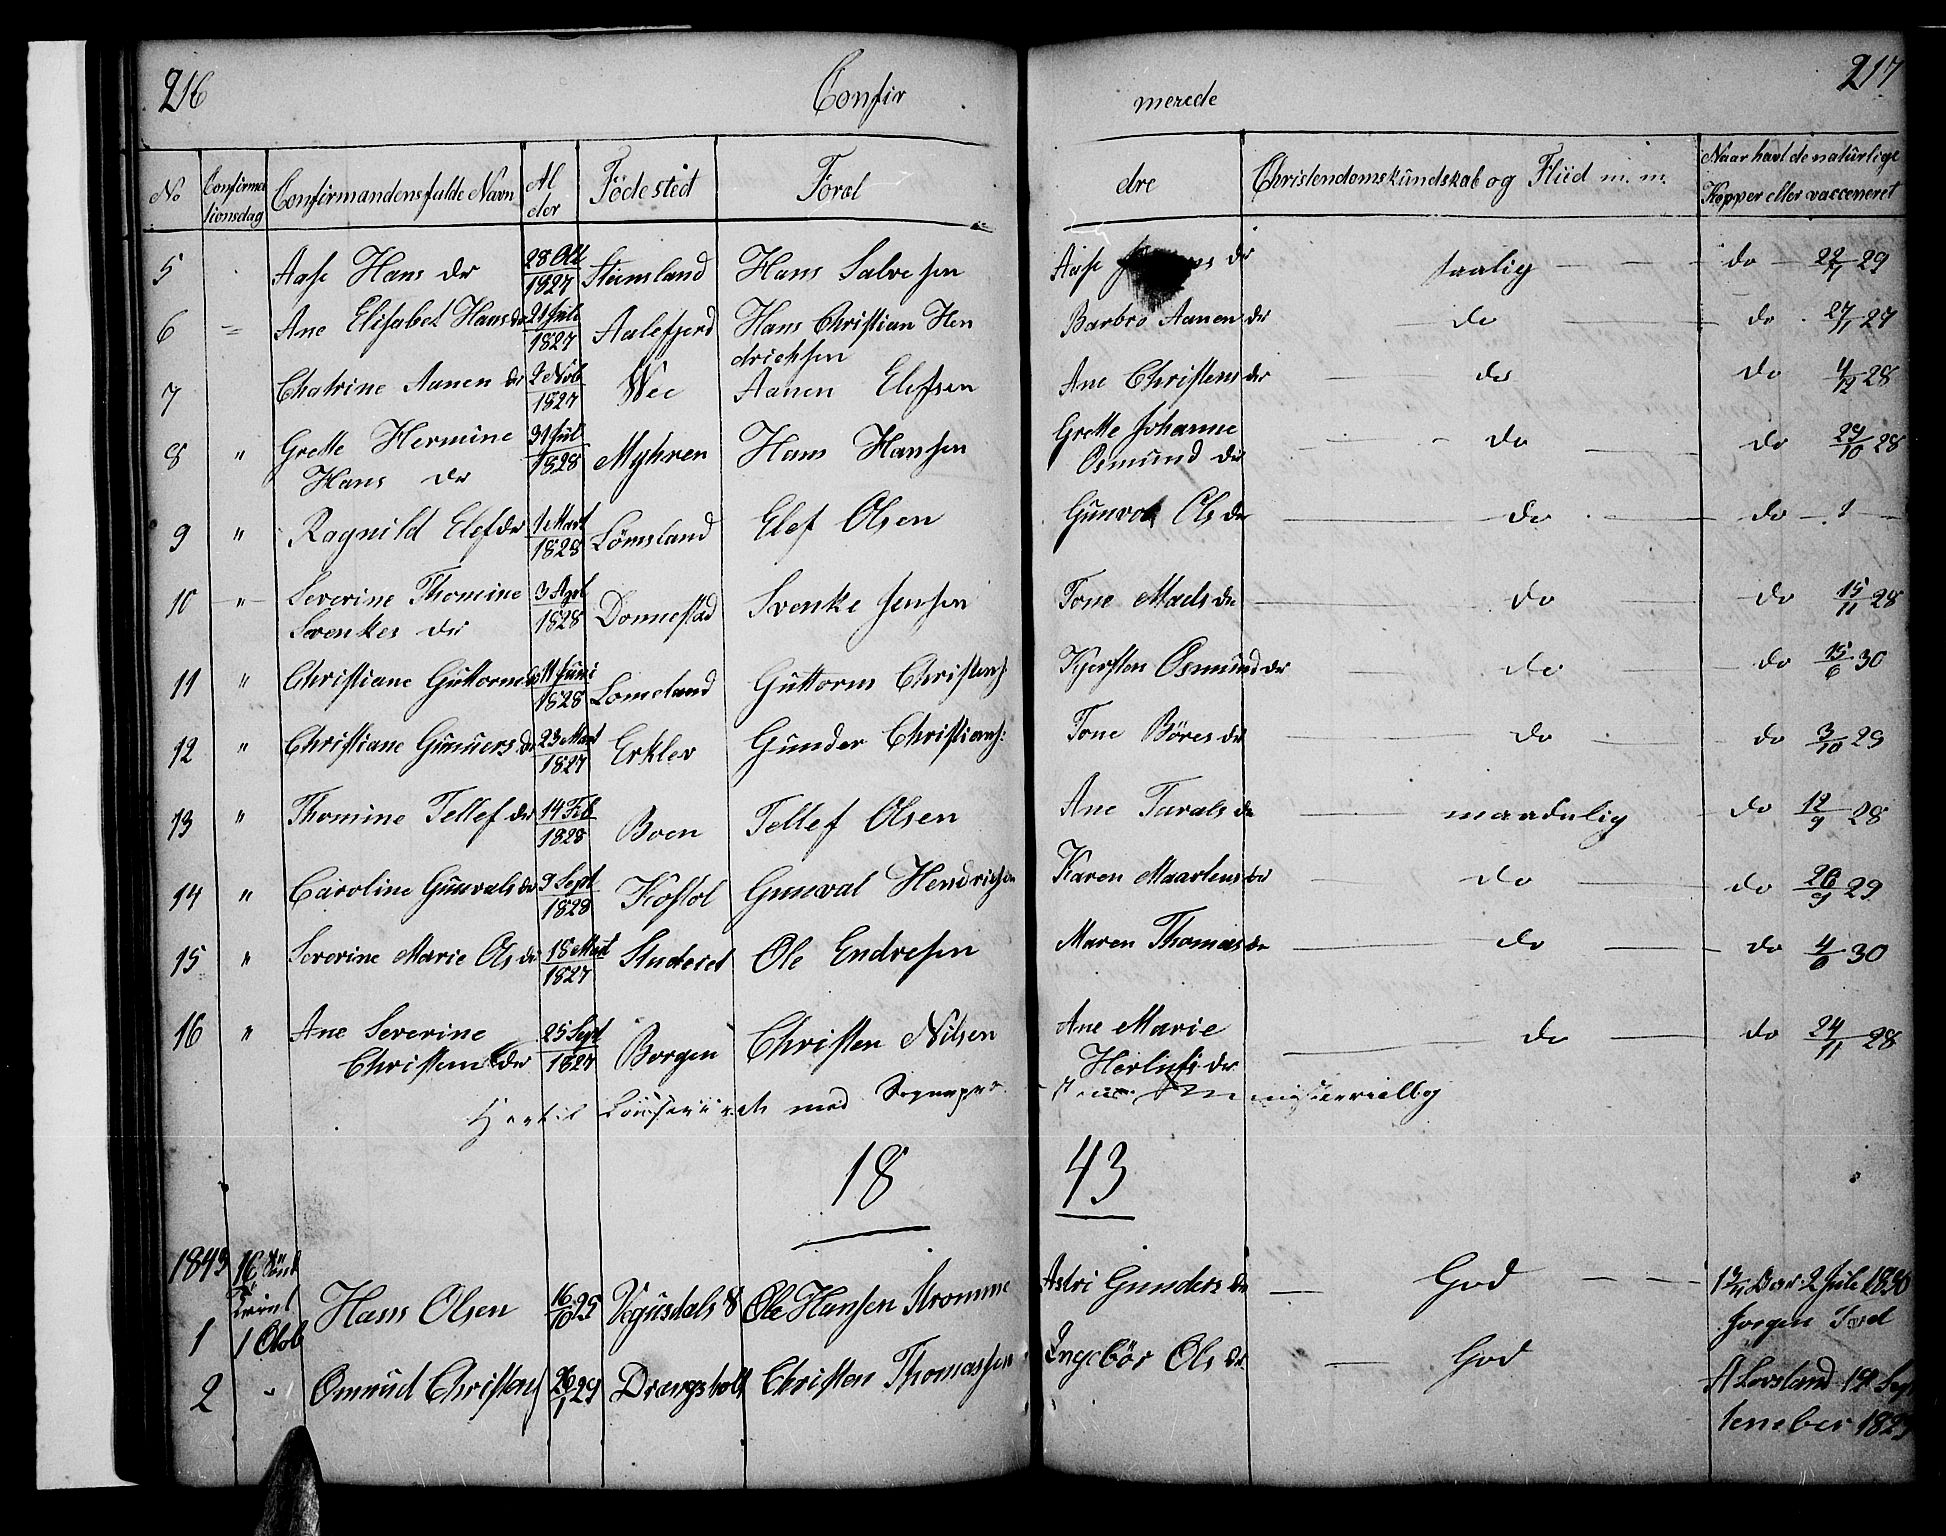 216 Confir merede 217
No Confirma tionsdag Confirmandens fulde Navn Al der Födested Foræl dre Christendomskundskab og Fliid m. m. Naar havt de naturlige Kopper eller vacceneret
5 Aase Hans dr 28 Oct 1827 Steensland Hans Salvesen Aase dr taalig do 29
6 Ane Elisabet Hans dr 21 Juli 1827 Aalefjerd Hans Christian Hen drichsen Barbro Aanen dr do do 27/1 27
7 Chatrine Aanen dr 2 Nob 1827 Wee Aanen Elefsen Ane Christens dr do do 4/12 28
8 " Grette Hermine Hans dr 31 Jul 1828 Myhren Hans Hansen Grette Johanne Osmund dr do do 29/10 28
9 " Ragnild Elef dr 1 Mart 1828 Lömsland Elef Olsen Ols dr do do
10 " Severine Thomine Svenkes dr 3 Apl 1828 Donnestad Svenke Jensen Tone Mads dr do do 15/11 28
11 " Christiane Guttorms 11 Juni 1828 Lomeland Guttorm Christens Kjersten Osmund dr do do 15/6 30
12 " Christiane Gunners dr 23 Mart 1827 Erklev Gunder Christians: Tone Böres dr do do 3/10 29
13 " Thomine Tellef dr 14 Feb 1828 Boen Tellef Olsen Ane Tarals dr maadelig do 12/9 28
14 " Caroline Gunvals dr 9 Sept 1828 Kostöl Gunval Hendrichsen Karen Maartens dr do do 26/9 29
15 " Severine Marie Ols dr 18 Mart 1827 Studeied Ole Endresen Maren Thomas dr do do 4/6 30
16 " Ane Severine Christens dr 25 Sept 1827 Borgen Christen Nilsen Ane Marie Herlufs dr do do 24/11 28
18 43
1843 16 Sönd Trinit
1 1 Octob Hans Olsen 16/10 25 Vegusdals Ole Hansen Stromme Astri Gunders dr God 2 Juli 1830
Jorgen
2 " Omund Christens 26/1 29 Drangsholt Christen Thomassen Ingebör Ols dr God A Lovsland 19 Sep
tember